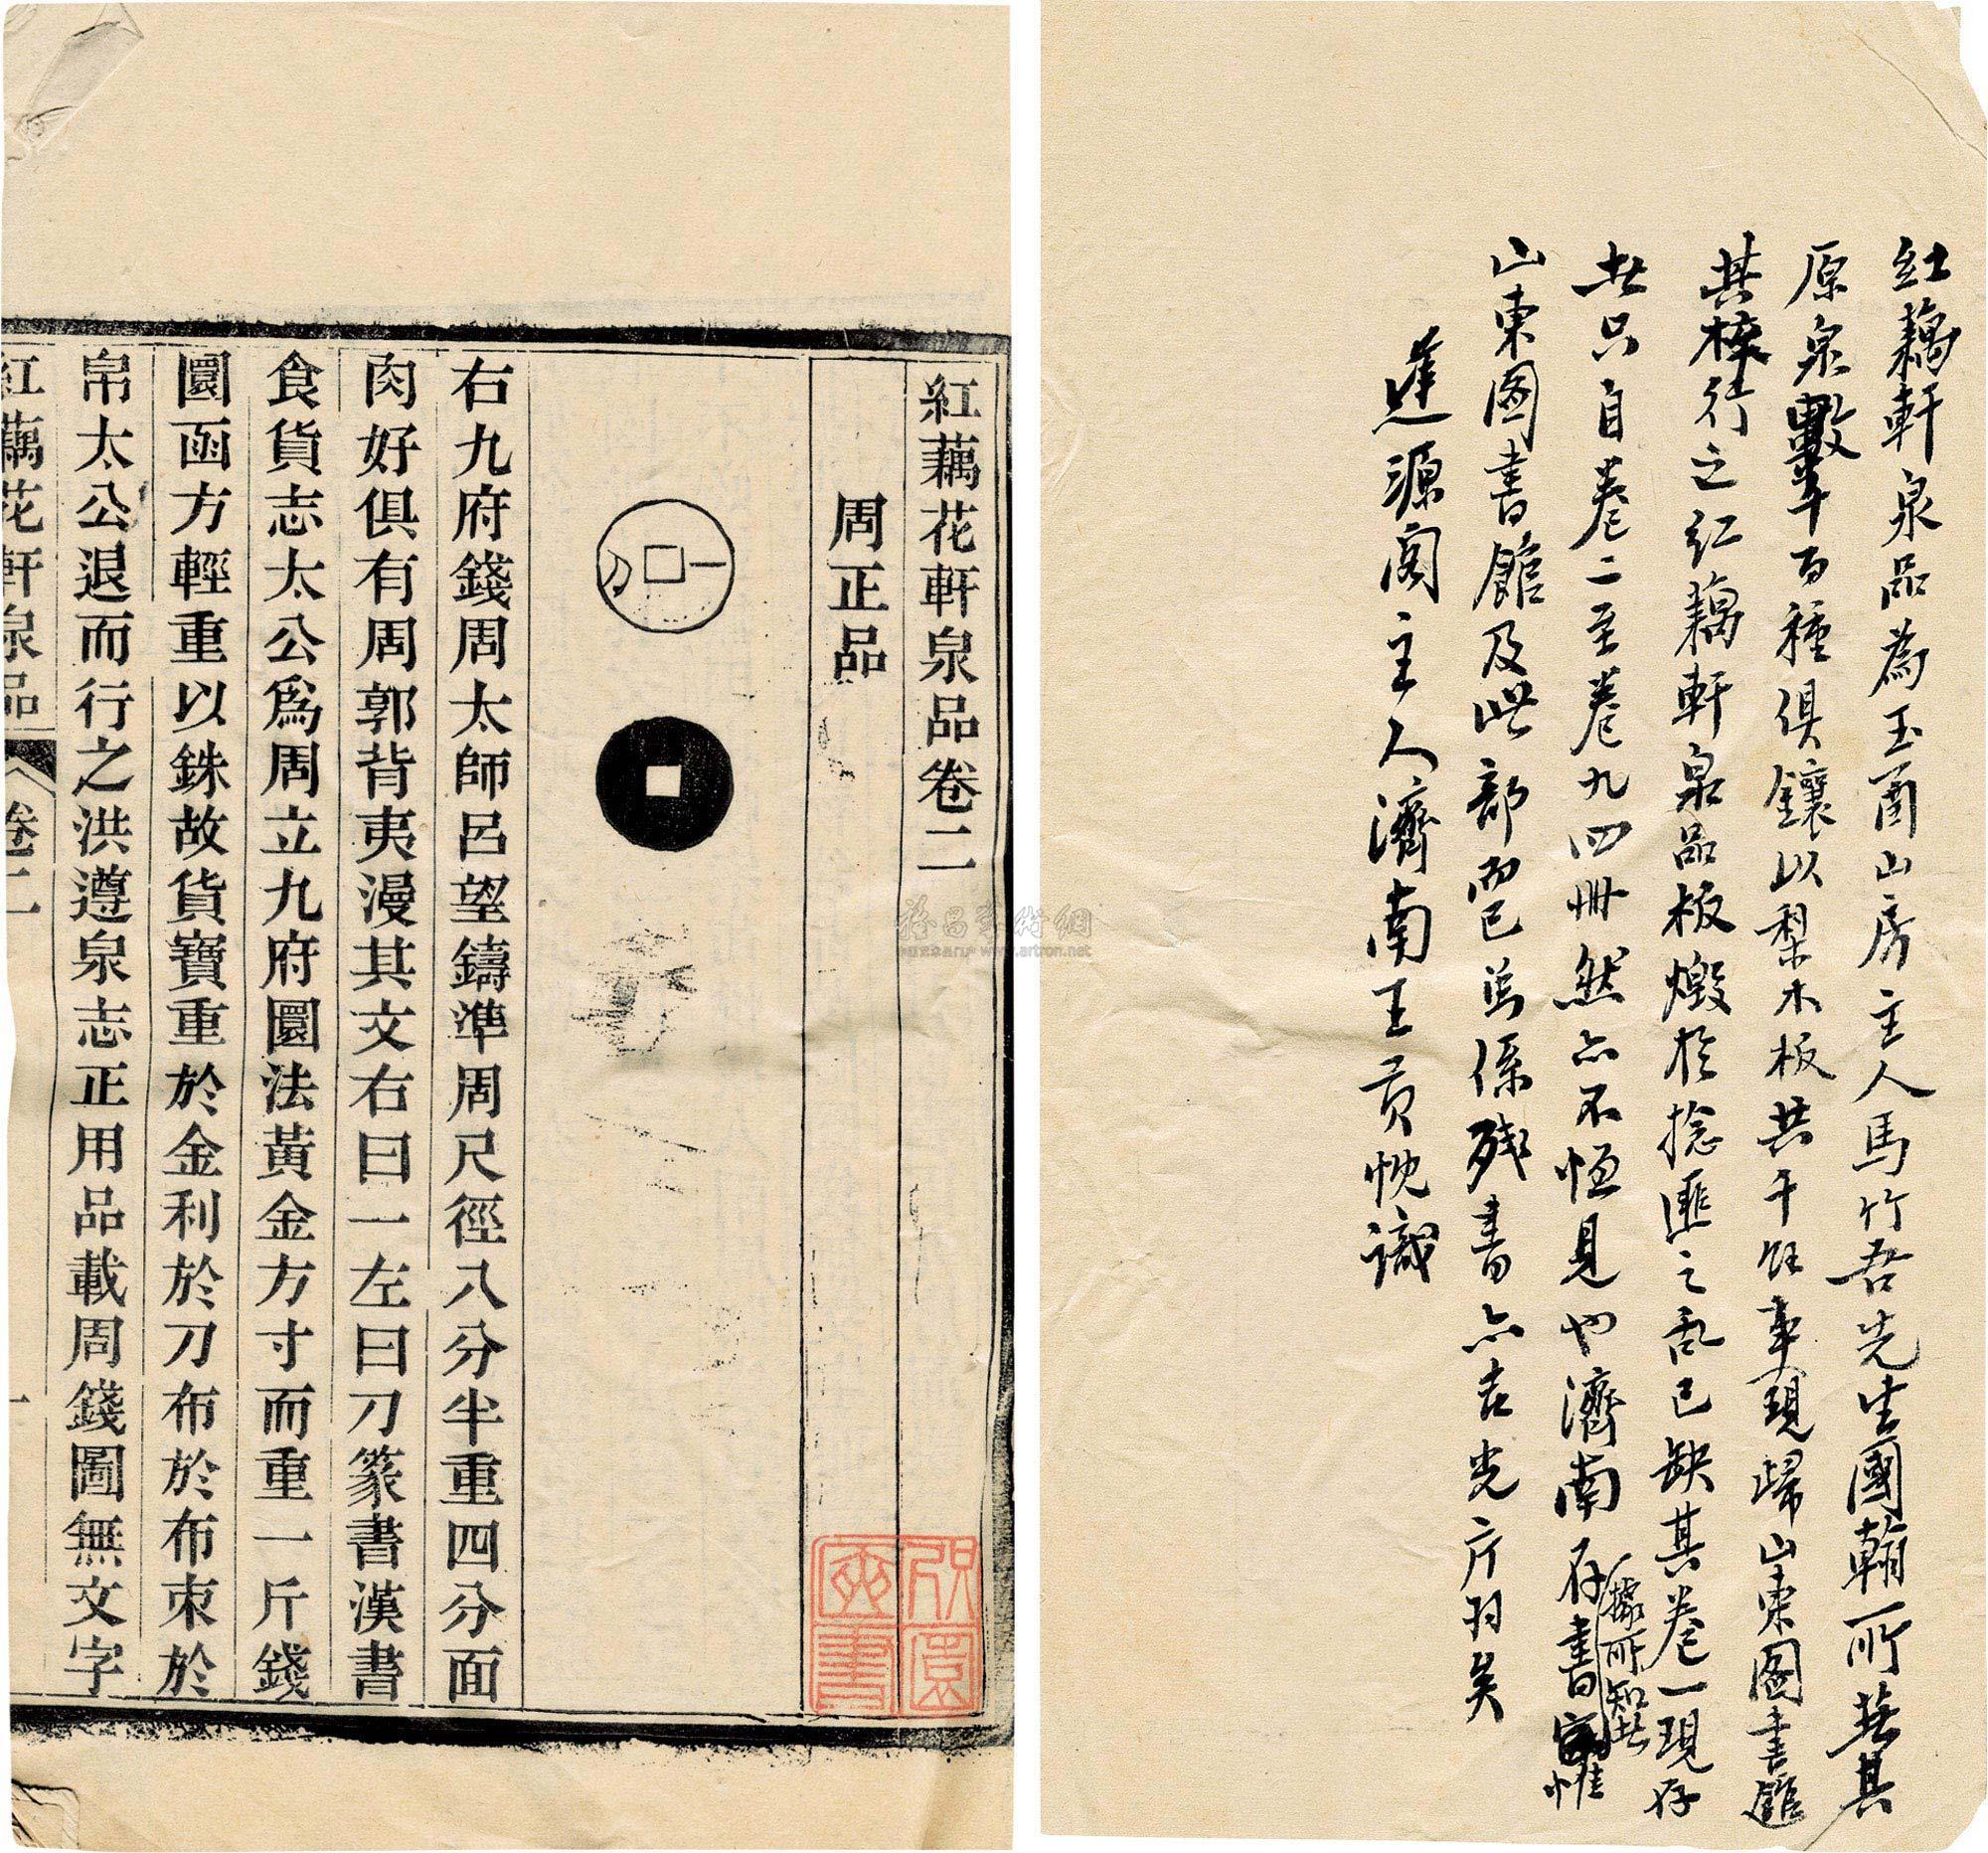 紅藕軒泉品為玉函山房主人馬竹吾先生國翰所著其
原泉數百種俱鑲以梨木板共千餘事現歸山東圖書館
其梓行之紅藕軒泉品板燬於捻匪之亂已缺其卷一現存
者只自卷二至卷九四冊然亦不恒見也濟南存書家惟
據所知
山東圖書館及此部而已為係殘書亦吉光片羽矣
蓬源閣主人濟南王貢忱識
紅藕花軒泉品卷二
周正品
一刀
右九府錢周太師呂望鑄準周尺徑八分半重四分面
肉好俱有周郭背夷漫其文右曰一左曰刀篆書漢書
食貨志太公為周立九府圜法黃金方寸而重一斤錢
圜函方輕重以銖故貨寶重於金利於刀布於布束於
帛太公退而行之洪遵泉志正用品載周錢圖無文字
紅藕花軒泉品 卷二 一
www.artron.net